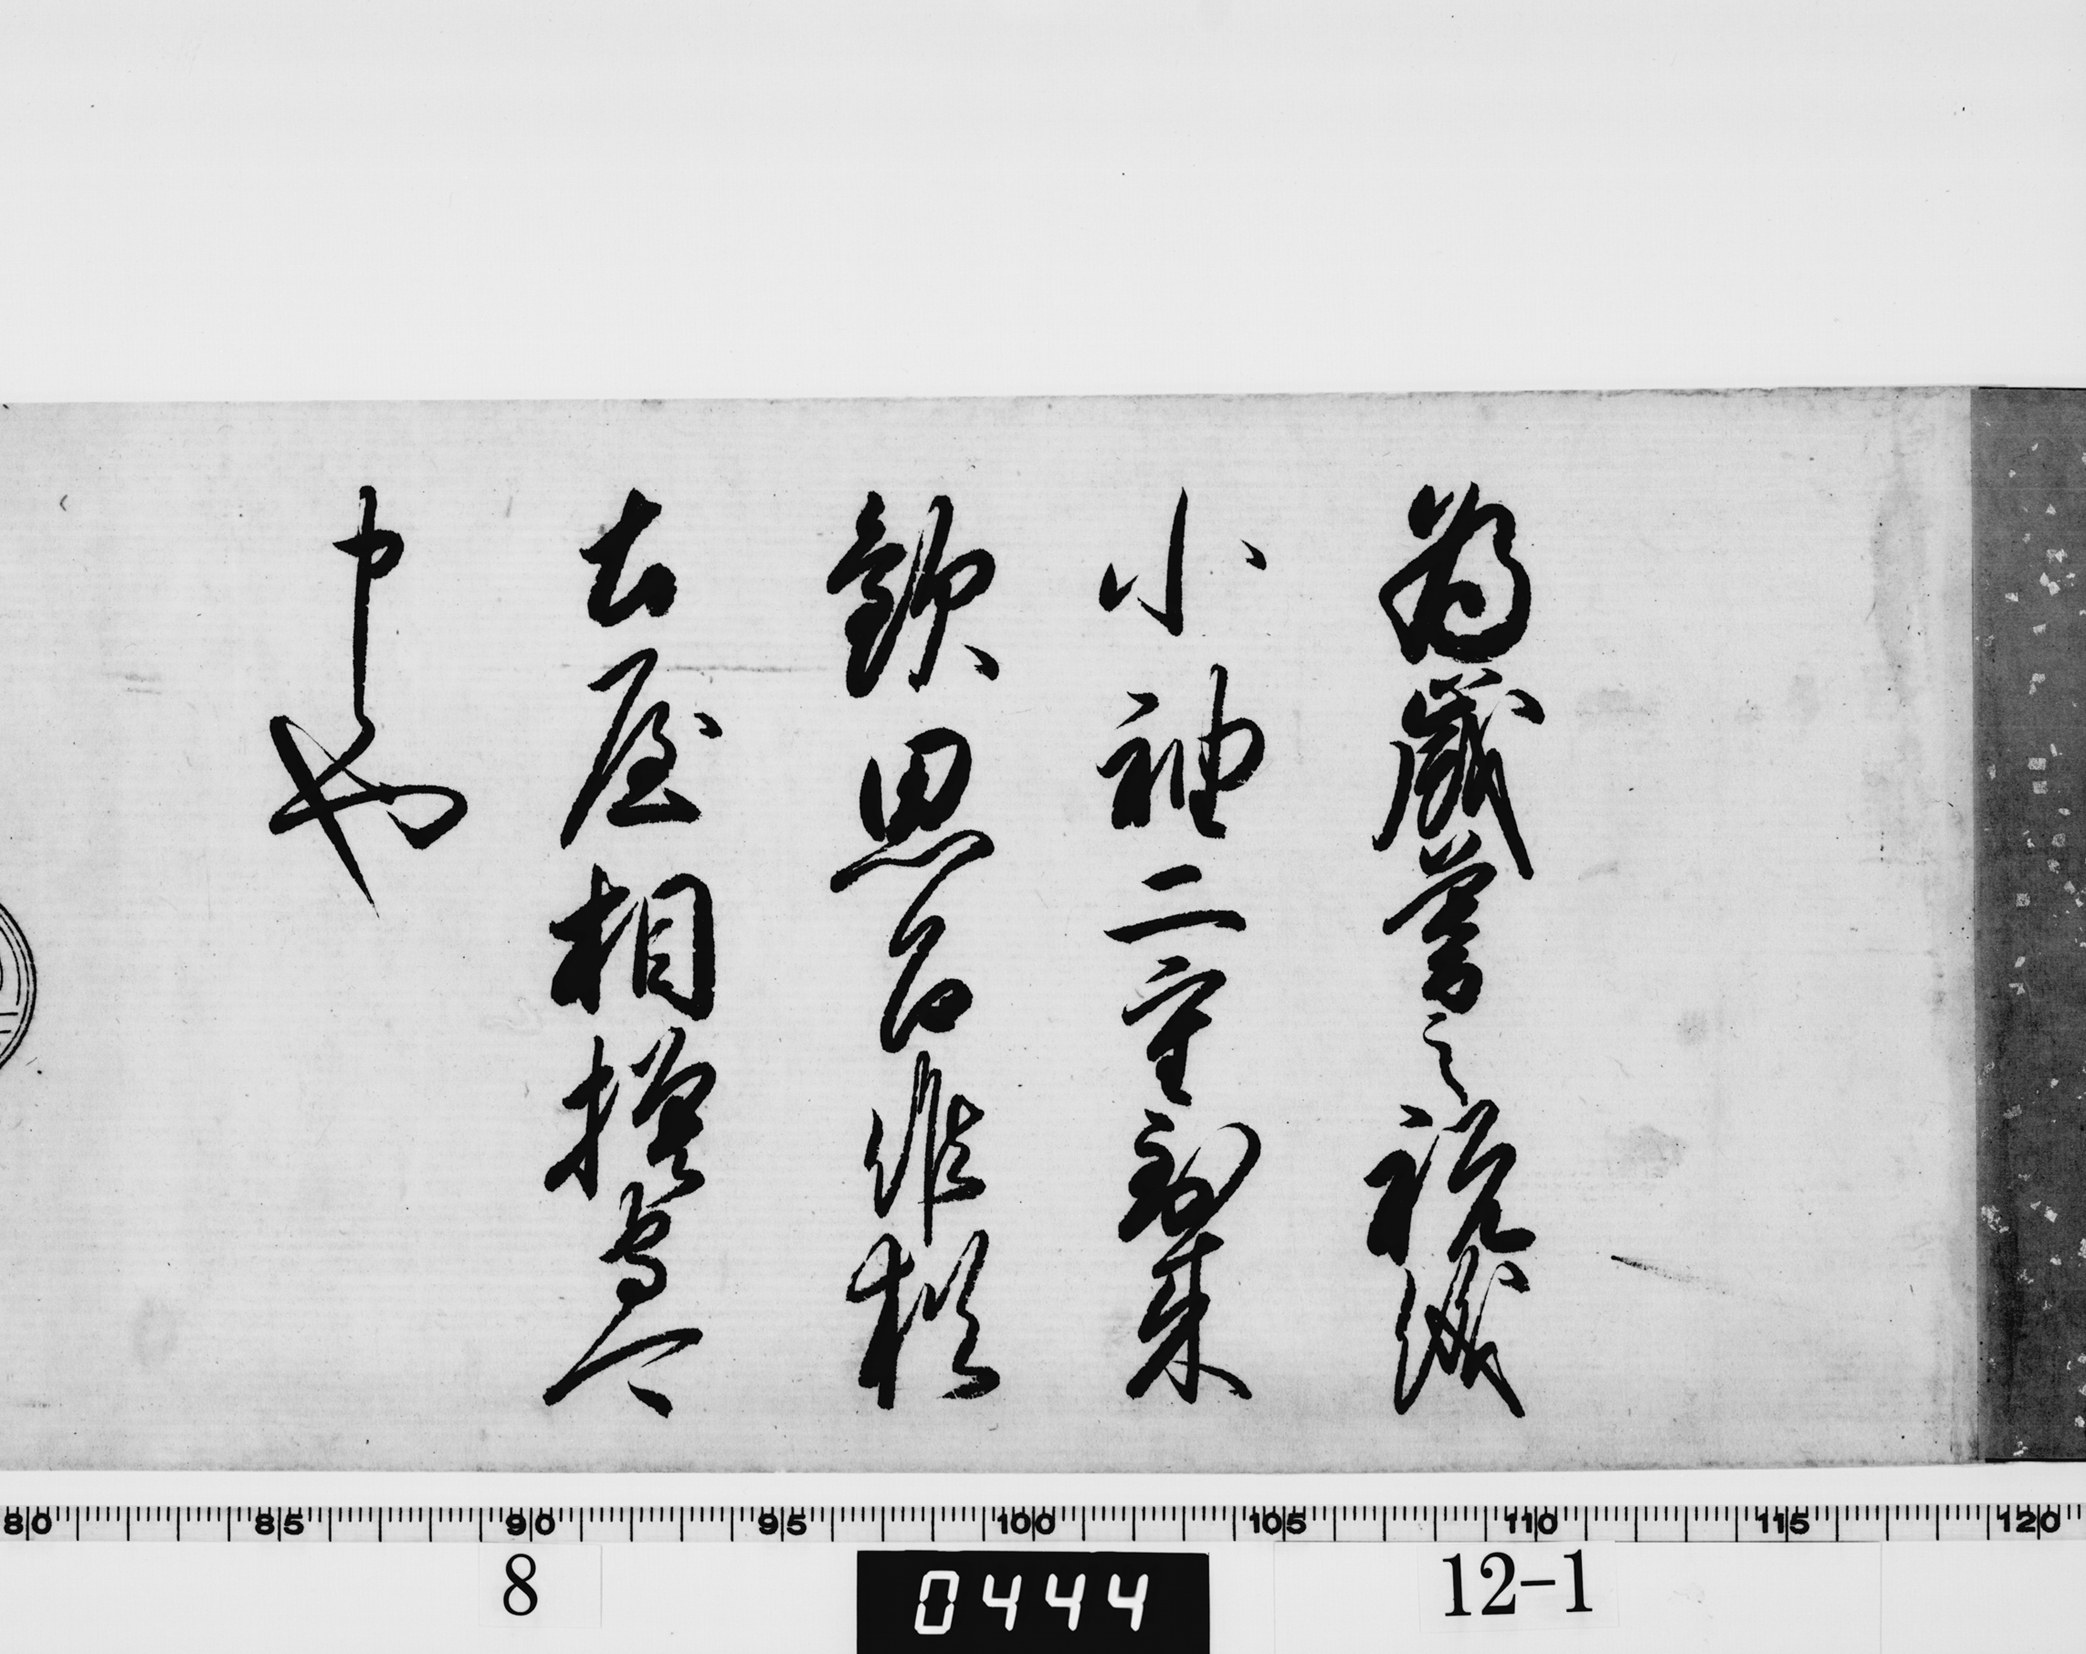 為歳暮之祝儀
小袖二重到来
歓思召候猶
土屋相模守可
申也
80 85 90 95 100 105 110 115 120
8 0444 12-1